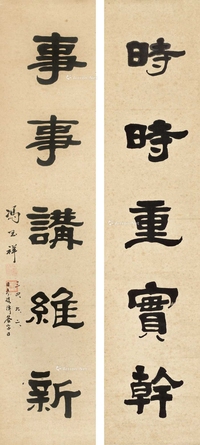 時時重實幹
事事講維新
馮玉祥